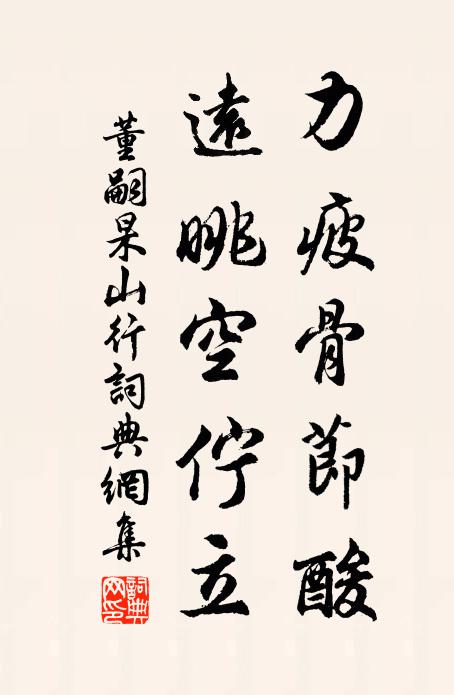 力疲骨節酸
遠眺空佇立
董嗣杲山行詞典網集
詞典網印